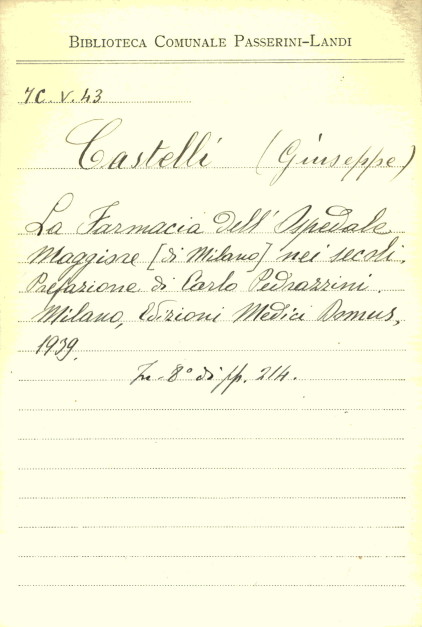 BIBLIOTECA COMUNALE PASSERINI-LANDI
7C.V.43
Castelli (Giuseppe)
La Farmacia dell'Ospedale
Maggiore [di Milano] nei secoli.
Prefazione di Carlo Pedrazzini.
Milano, Edizioni Medici Domus,
1939.
In-8° di pp. 214.